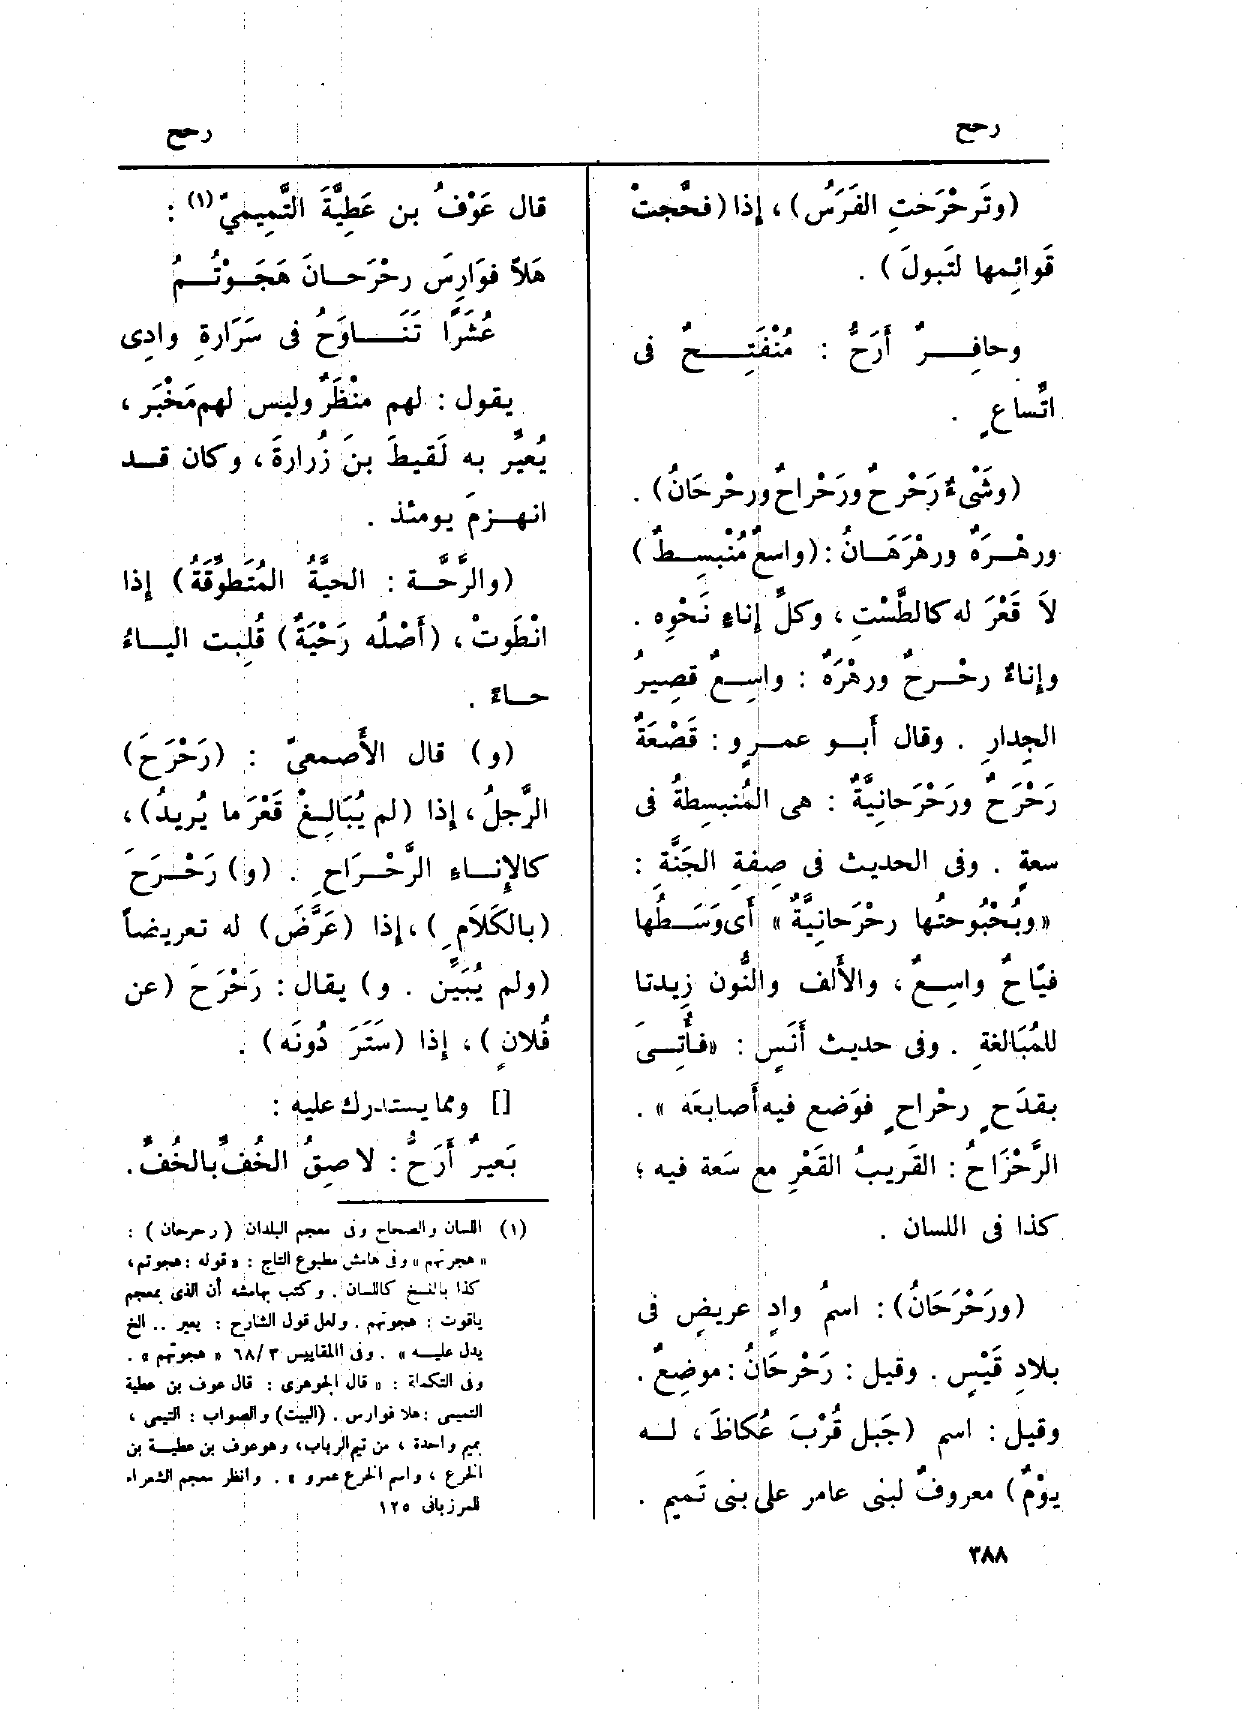 رحح
رحح
(وتَرحْرَحَتِ الفَرَسُ) ، إذا (فحَّجتْ
قَوائِمها لتَبولَ) .
وحافِــرٌ أَرَحُّ : مُنْفَتِــحٌ فى
اتِّساعٍ .
(وشَىْءٌ رَحْرحٌ ورَحْراحٌ ورحْرحَانُ) .
ورهْــرَهٌ ورهْرَهَــانُ : (واسعٌ مُنْبسِــطٌ)
لاَ قَعْرَ له كالطَّسْتِ ، وكلُّ إناءٍ نَحْوِه .
وإناءٌ رحْــرحٌ ورهْرَهٌ : واسِــعٌ قصِيرُ
الجِدارِ . وقال أَبــو عمــرٍو : قَصْعَةٌ
رَحْرَحٌ ورَحْرَحانِيَّةٌ : هى المُنبسِطةُ فى
سعةٍ . وفى الحديث فى صِفةِ الجَنَّةِ :
«وبُحْبُوحتُها رحْرَحانِيَّةٌ» أَى وَسَــطُها
فيَّاحٌ واسِــعٌ ، والأَلف والنُّون زِيدتا
للمُبَالغةِ . وفى حديث أَنَسٍ : «فأُتِــىَ
بقدَحٍ رحْراحٍ فوَضع فيه أَصابعَه» .
الرَّحْرَاحُ : القَريبُ القَعْرِ مع سَعة فيه ؛
كذا فى اللسان .
(ورَحْرَحَانُ) : اسمُ وادٍ عريضٍ فى
بلادِ قَيْسٍ . وقيل : رَحْرحَانُ : موضعٌ .
وقيل : اسم (جَبل قُرْبَ عُكاظَ ، لــه
يوْمٌ) معروفٌ لبنى عامر على بنى تَميم .
قال عَوْفُ بن عَطِيَّةَ التَّميمىّ (١) :
هَلاّ فوَارِسَ رحْرَحــانَ هَجَــوْتُــمُ
عُشَرًا تَنَــاوَحُ فى سَرَارةِ وادِى
يقول : لهم منْظَرٌ وليس لهم مَخْبَر ،
يُعيِّر به لَقيطَ بنَ زُرارةَ ، وكان قــد
انهــزمَ يومئذ .
(والرَّحَّــة : الحيَّةُ المُتَطوِّقَةُ) إذا
انْطَوتْ ، (أَصْلُه رَحْيَةٌ) قُلِبت اليــاءُ
حــاءً .
(و) قال الأَصمعىّ : (رَحْرَحَ)
الرَّجلُ ، إذا (لم يُبَالِغْ قَعْرَ ما يُريدُ) ،
كالإِنــاءِ الرَّحْــرَاحِ . (و) رَحْــرَحَ
(بالكَلاَمِ) ، إذا (عَرَّضَ) له تعريضاً
(ولم يُبَيِّن . و) يقال : رَحْرَحَ (عن
فُلانٍ) ، إذا (سَتَرَ دُونَه) .
[] ومما يستدرك عليه :
بَعيرٌ أَرَحُّ : لاصِقُ الخُفِّ بالخُفِّ .
(١) اللسان والصحاح وفى معجم البلدان (رحرحان) :
«هجرتهم» وفى هامش مطبوع التاج : «قوله : هجوتم ،
كذا بالنسخ كاللسان . وكتب بهامشه أن الذى بمعجم
ياقوت : هجوتهم . ولعل قول الشارح : يعير .. الخ
يدل عليــه» . وفى المقاييس ٦٨/٣ «هجوتهم» .
وفى التكملة : «قال الجوهرى : قال عوف بن عطية
التميمى : هلا فوارس . (البيت) والصواب : التيمى ،
بميم واحدة ، من تيم الرباب ، وهو عوف بن عطيــة بن
الخرع ، واسم الخرع عمرو» . وانظر معجم الشعراء
للمرزبانى ١٢٥
٣٨٨